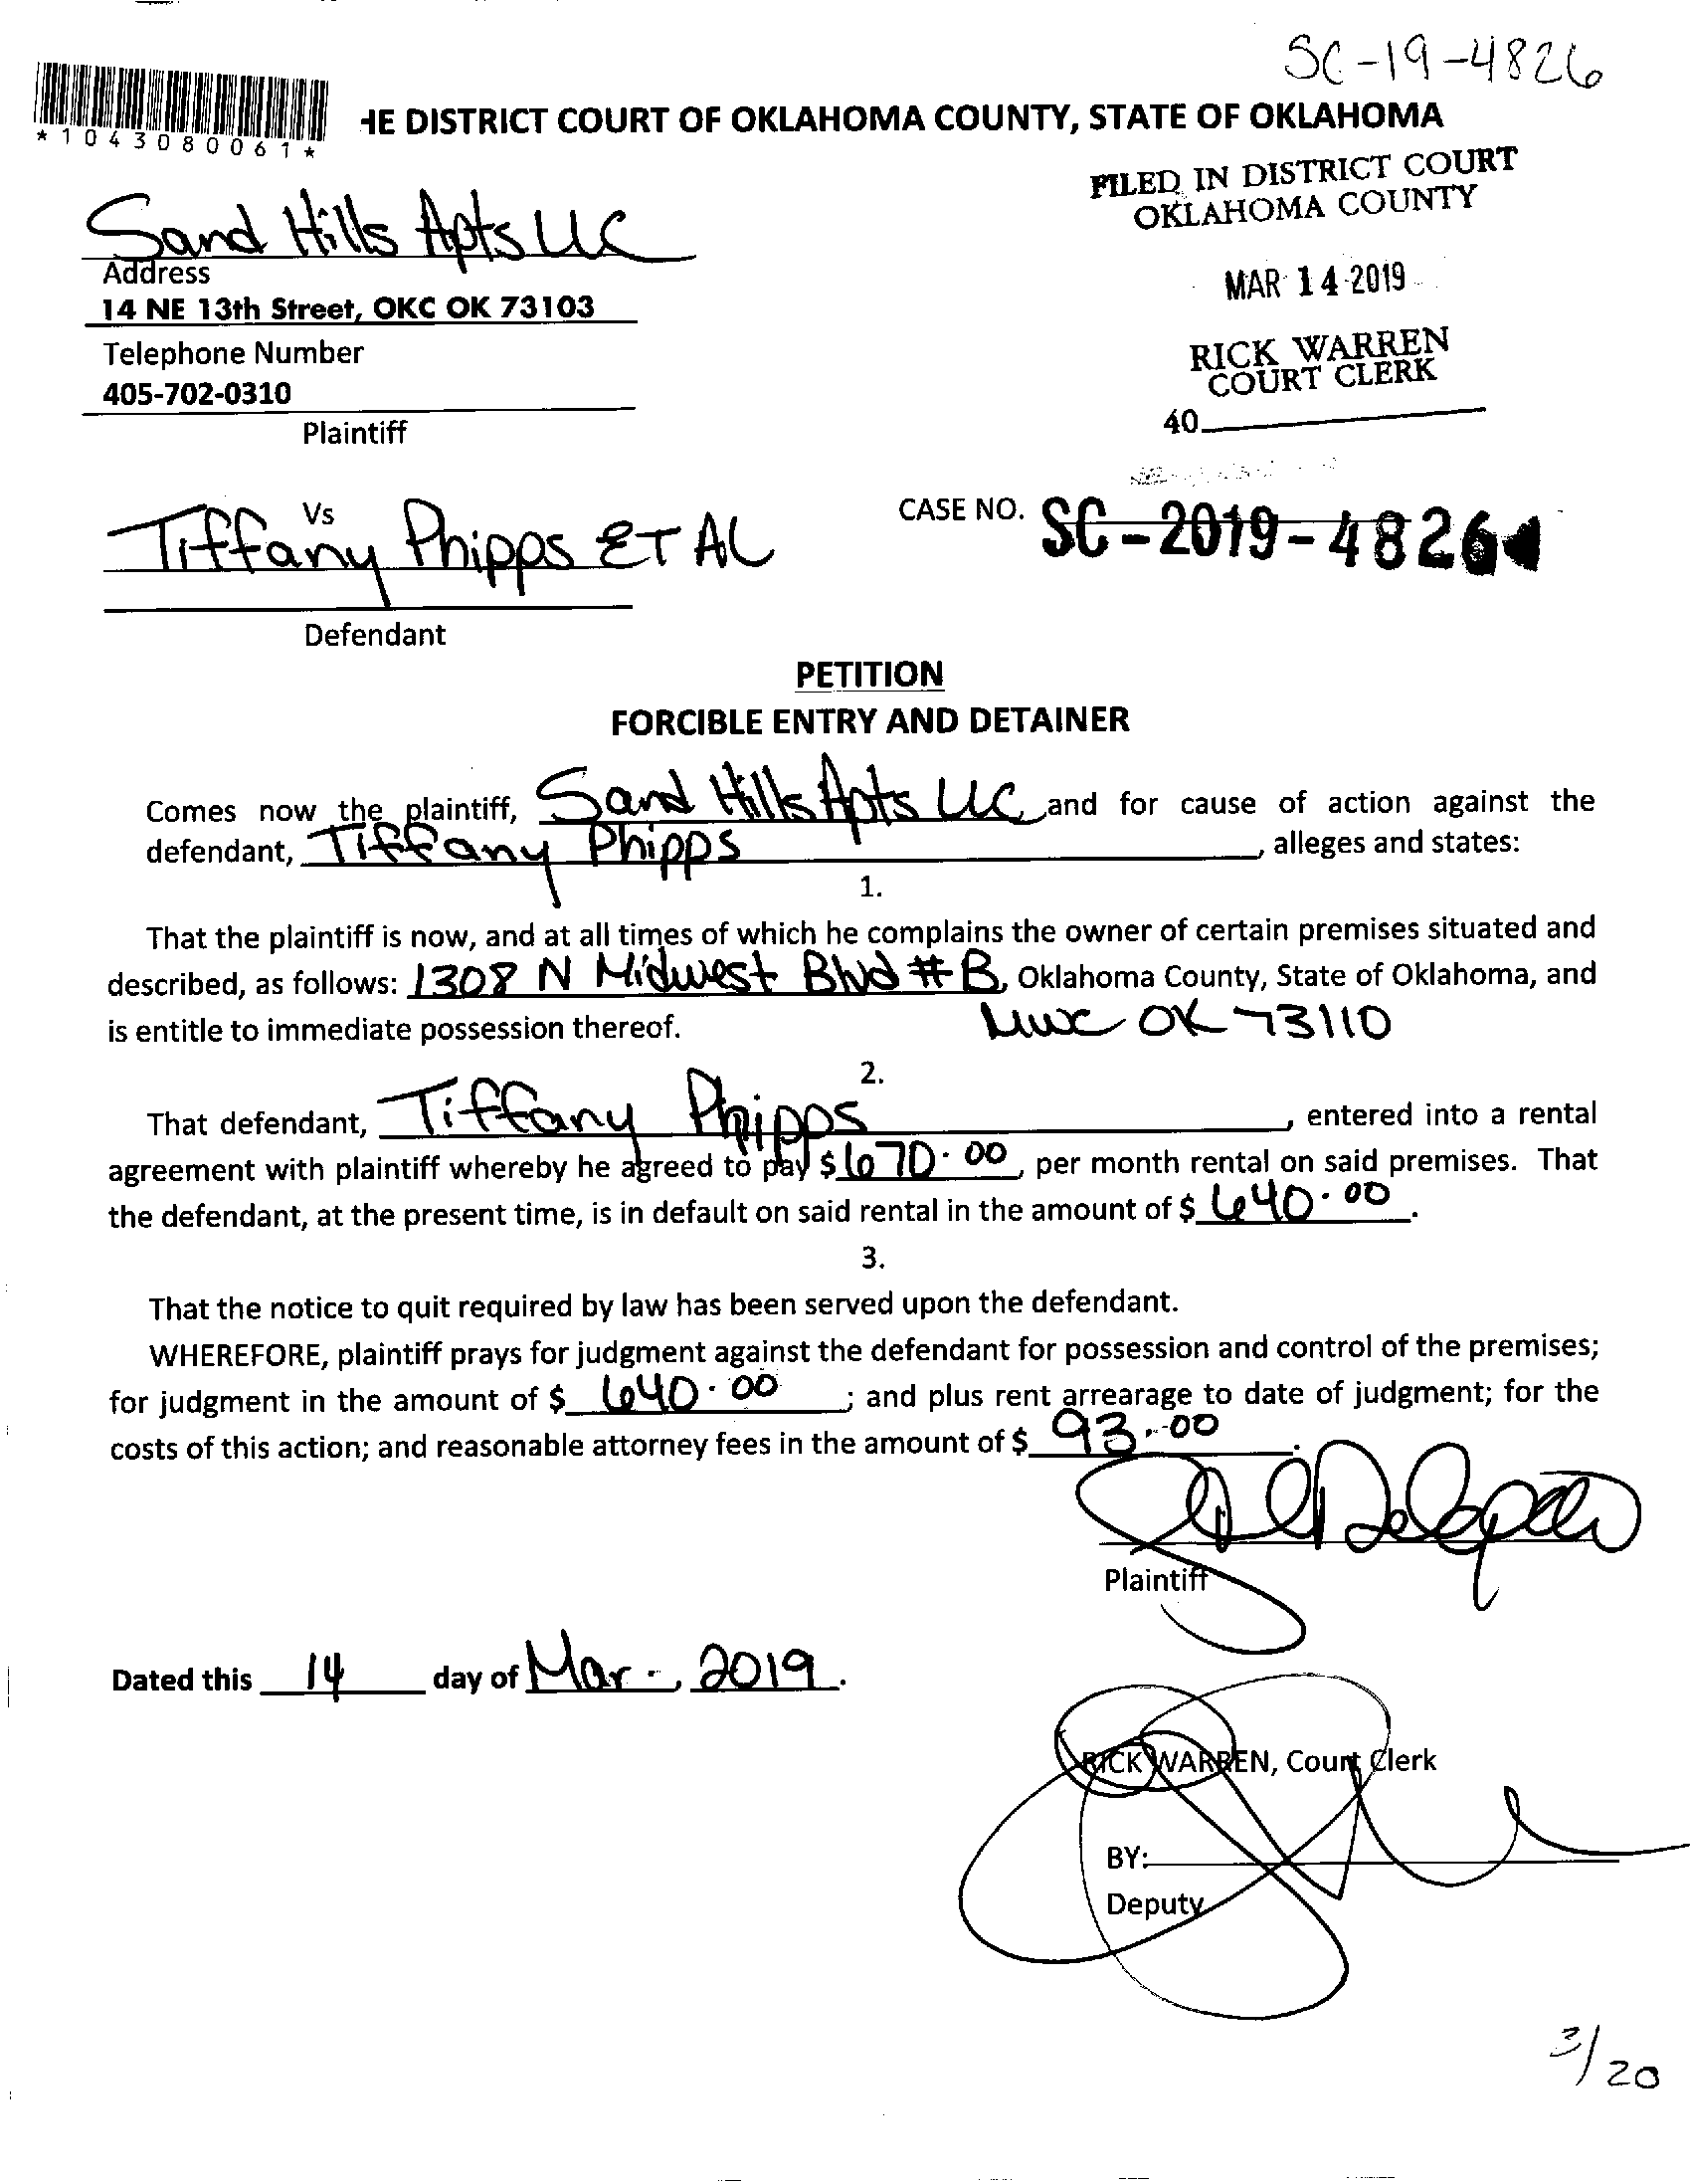 SC-19-4826
*1043080061*
HE DISTRICT COURT OF OKLAHOMA COUNTY, STATE OF OKLAHOMA
FILED IN DISTRICT COURT
OKLAHOMA COUNTY
Sand Hills Apts LLC
Address
14 NE 13th Street, OKC OK 73103
MAR 14 2019
Telephone Number
405-702-0310
RICK WARREN
COURT CLERK
Plaintiff
40
Vs
Tiffany Phipps ET AL
CASE NO. SC-2019-4826
Defendant
PETITION
FORCIBLE ENTRY AND DETAINER
Comes now the plaintiff, Sand Hills Apts LLC, and for cause of action against the
defendant, Tiffany Phipps, alleges and states:
1.
That the plaintiff is now, and at all times of which he complains the owner of certain premises situated and
described, as follows: 1308 N Midwest Blvd # B, Oklahoma County, State of Oklahoma, and
is entitle to immediate possession thereof. MWC OK 73110
2.
That defendant, Tiffany Phipps, entered into a rental
agreement with plaintiff whereby he agreed to pay $670.00, per month rental on said premises. That
the defendant, at the present time, is in default on said rental in the amount of $640.00.
3.
That the notice to quit required by law has been served upon the defendant.
WHEREFORE, plaintiff prays for judgment against the defendant for possession and control of the premises;
for judgment in the amount of $640.00; and plus rent arrearage to date of judgment; for the
costs of this action; and reasonable attorney fees in the amount of $93.00.
Plaintiff
Dated this 14 day of Mar., 2019.
RICK WARREN, Court Clerk
BY:
Deputy
3/20